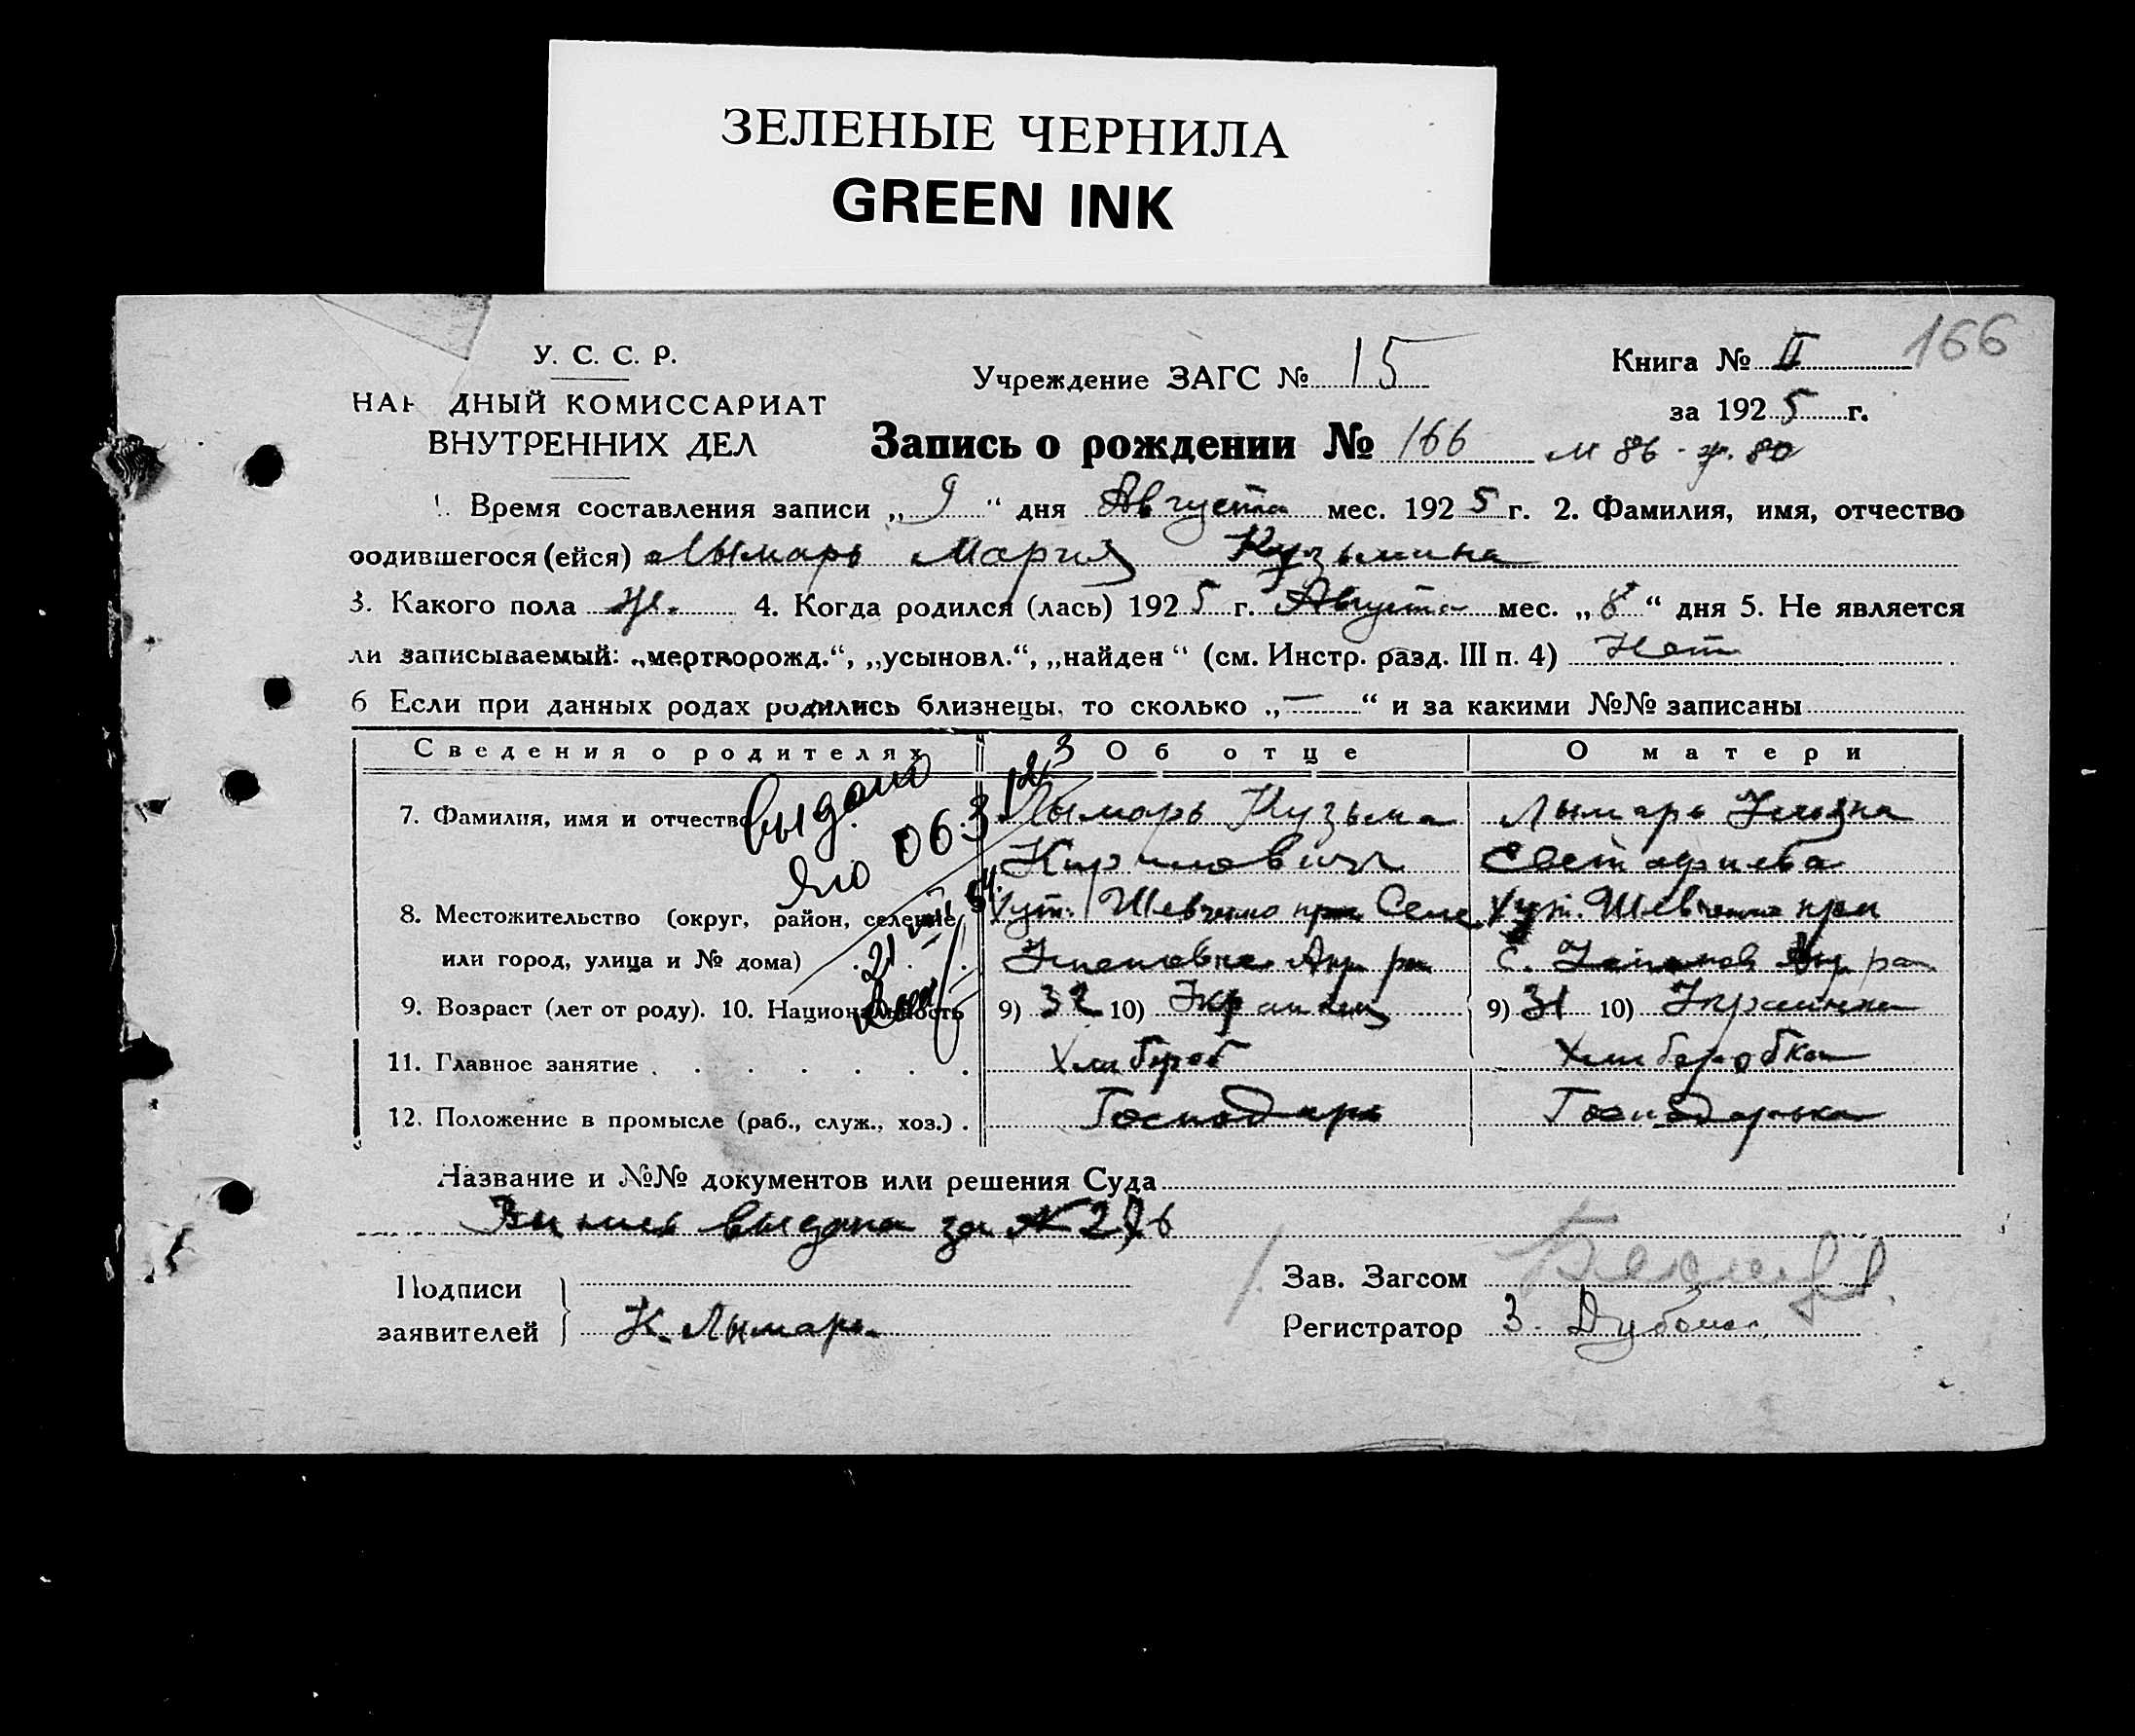 ЗЕЛЕНЫЕ ЧЕРНИЛА
GREEN INK
166
У. С. С. Р.
НАР ДНЫЙ КОМИССАРИАТ
ВНУТРЕННИХ ДЕЛ
Учреждение ЗАГС № 15
Книга № II
за 1925 г.
Запись о рождении № 166 м 86 - ж. 80
1. Время составления записи „9“ дня Августа мес. 1925 г. 2. Фамилия, имя, отчество
родившегося (ейся) Лымарь Мария Кузьмина
3. Какого пола ж. 4. Когда родился (лась) 1925 г. Августа мес. „8“ дня 5. Не является
ли записываемый: „мертворожд.“, „усыновл.“, „найден“ (см. Инстр. разд. III п. 4) Нет
6 Если при данных родах родились близнецы, то сколько „—“ и за какими №№ записаны
Сведения о родителях Об отце О матери
7. Фамилия, имя и отчество Лымарь Кузьма Лымарь
Кирилович
выдано
8. Местожительство (округ, район, селение Хут. Шевченко при Селе Хут. Шевченко при
или город, улица и № дома) с.
9. Возраст (лет от роду). 10. Национальность 9) 32 10) Украинец 9) 31 10) Украинка
11. Главное занятие Хлибороб Хлиборобка
12. Положение в промысле (раб., служ., хоз.) Господарь Господарька
Название и №№ документов или решения Суда
выдана за №
Подписи
заявителей К. Лымарь
Зав. Загсом
Регистратор З.